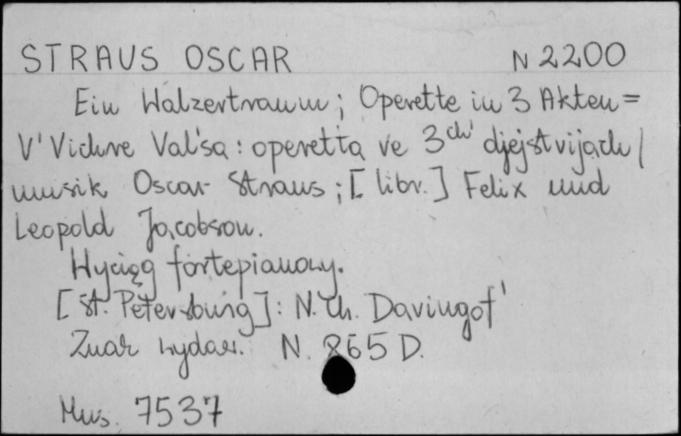 STRAUS OSCAR N 2200
Ein Walzertraum; Operette in 3 Akten =
V' Vichre Val'sa: operetta ve 3ch' djejstvijach /
musik Oscar Straus; [libr.] Felix und
Leopold Jacobson.
Wyciąg fortepianowy.
[St. Petersburg]: N. Ch. Davingof'
Znak wydaw. N. 865 D.
Mus. 7537